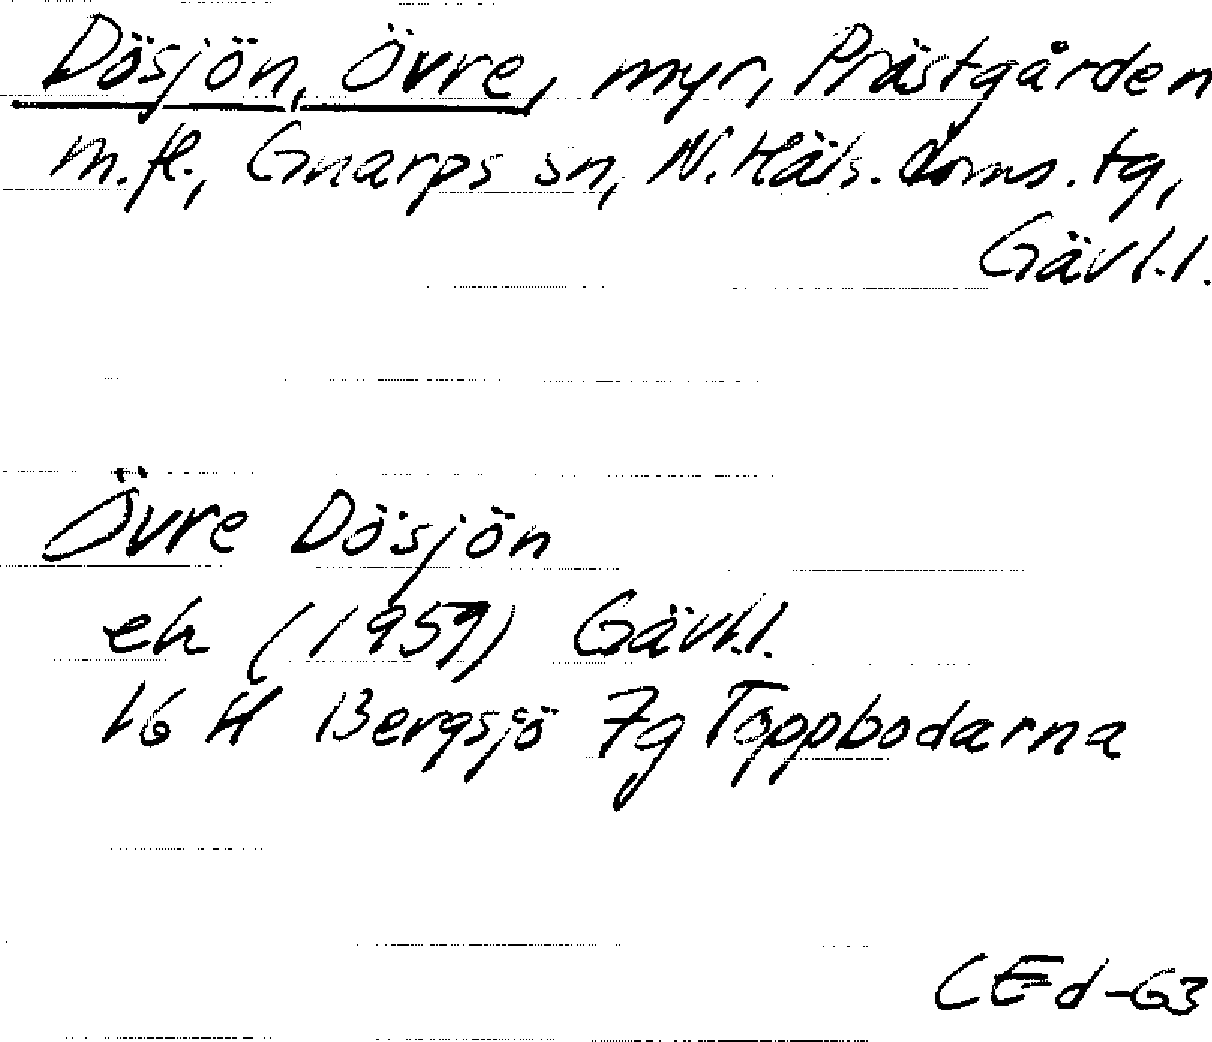 Dösjön, Övre, myr, Prästgården
m.fl., Gnarps sn, N. Häls. doms. tg,
Gävl.l.
Övre Dösjön
ek (1959) Gävl.l.
16 H Bergsjö 7g Toppbodarna
CEd-63